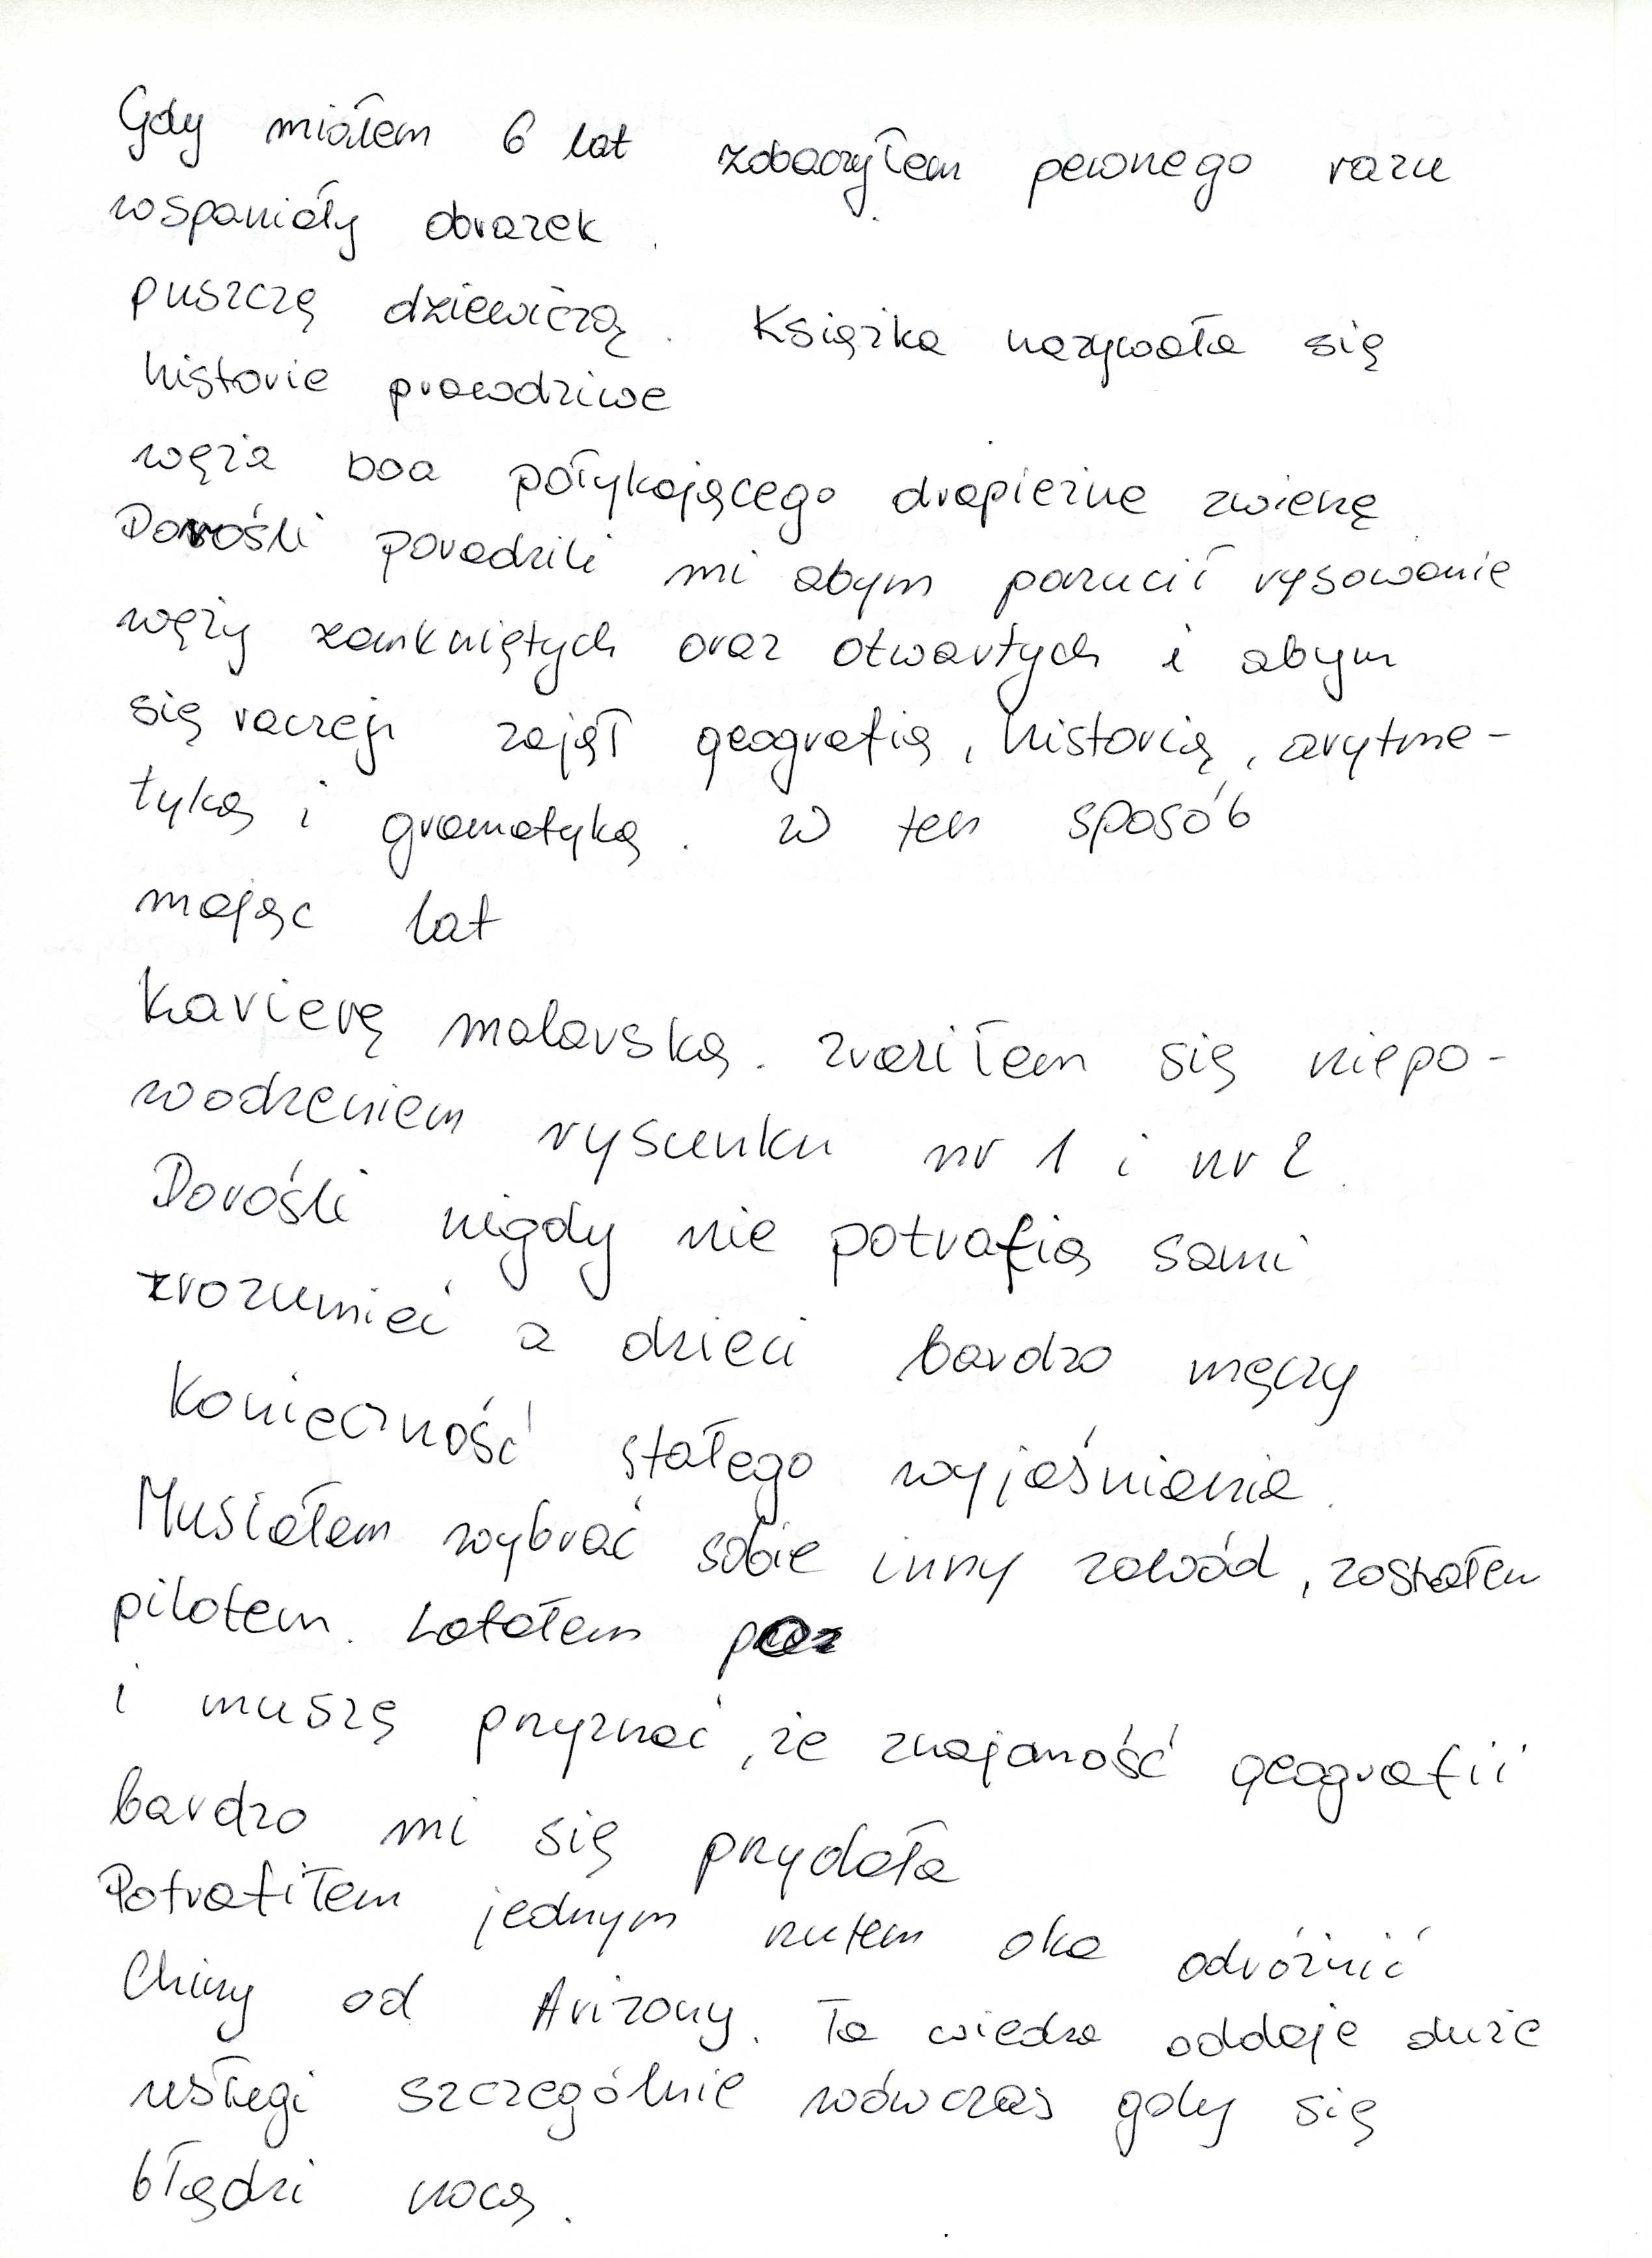 Gdy miałem 6 lat zobaczyłem pewnego razu
wspaniały obrazek.
puszczę dziewiczą. Książka nazywała się
historie prawdziwe
węża boa połykającego drapieżne zwierzę
Dorośli poradzili mi abym porzucił rysowanie
węży zamkniętych oraz otwartych i abym
się raczej zajął geografią, historią, arytme-
tyką i gramatyką. W ten sposób
mając lat
karierę malarską. Zraziłem się niepo-
wodzeniem rysunku nr 1 i nr 2.
Dorośli nigdy nie potrafią sami
zrozumieć a dzieci bardzo męczy
konieczność stałego wyjaśniania.
Musiałem wybrać sobie inny zawód, zostałem
pilotem. Latałem
i muszę przyznać, że znajomość geografii
bardzo mi się przydała
Potrafiłem jednym rzutem oka odróżnić
Chiny od Arizony. Ta wiedza oddaje duże
usługi szczególnie wówczas gdy się
błądzi nocą.